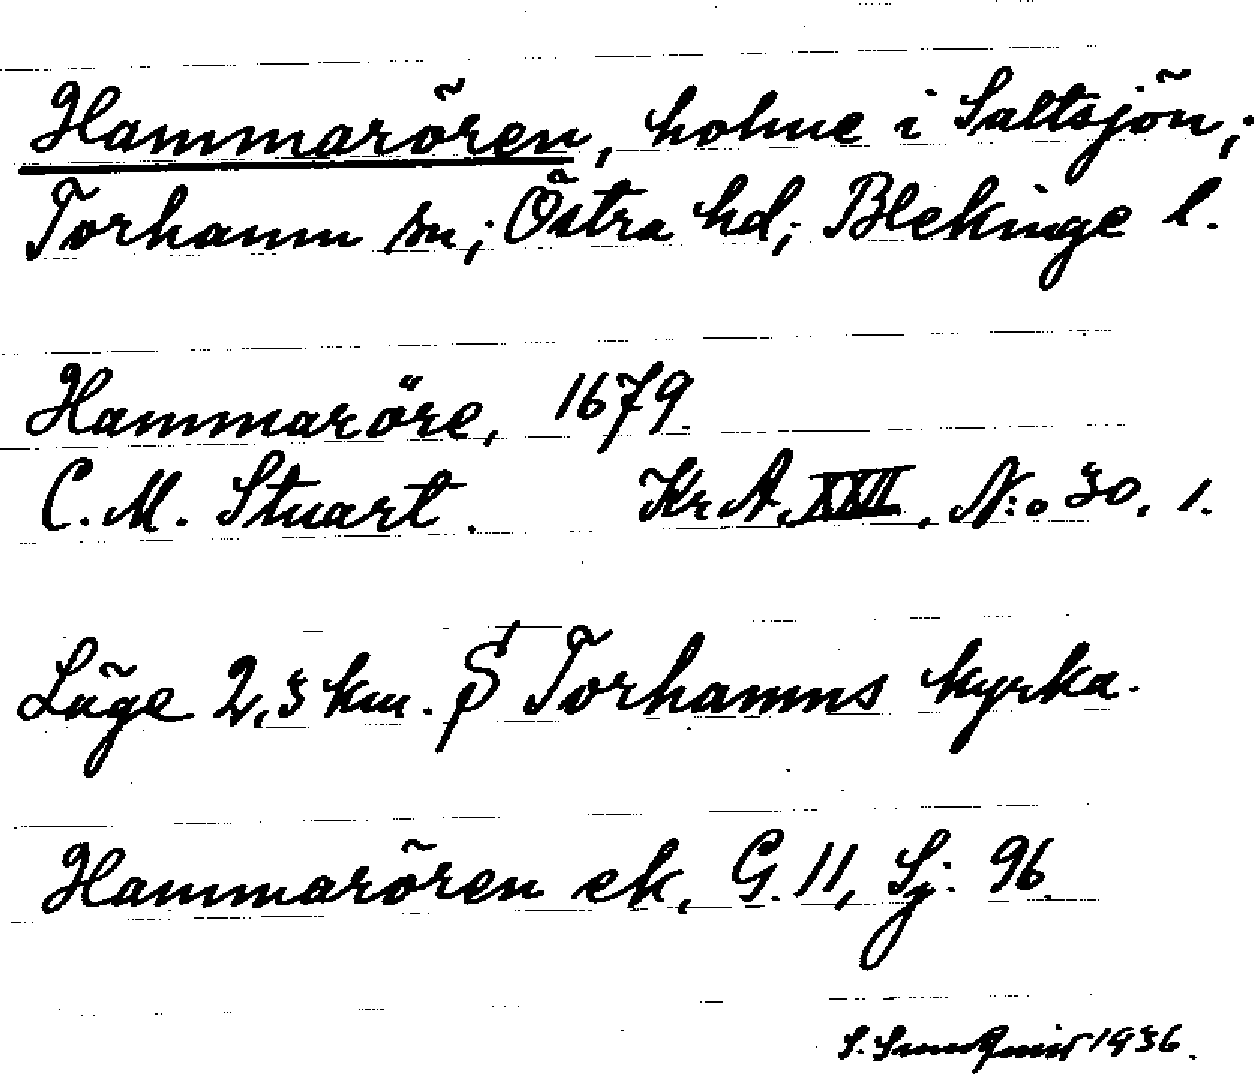 Hammarören, holme i Saltsjön;
Torhamn sn; Östra hd; Blekinge l.
Hammaröre, 1679
C. M. Stuart. Kr A. XXII, N:o 30. 1.
Läge 2,3 km. S Torhamns kyrka.
Hammarören ek, G. 11, Sj. 96
S. 1936.